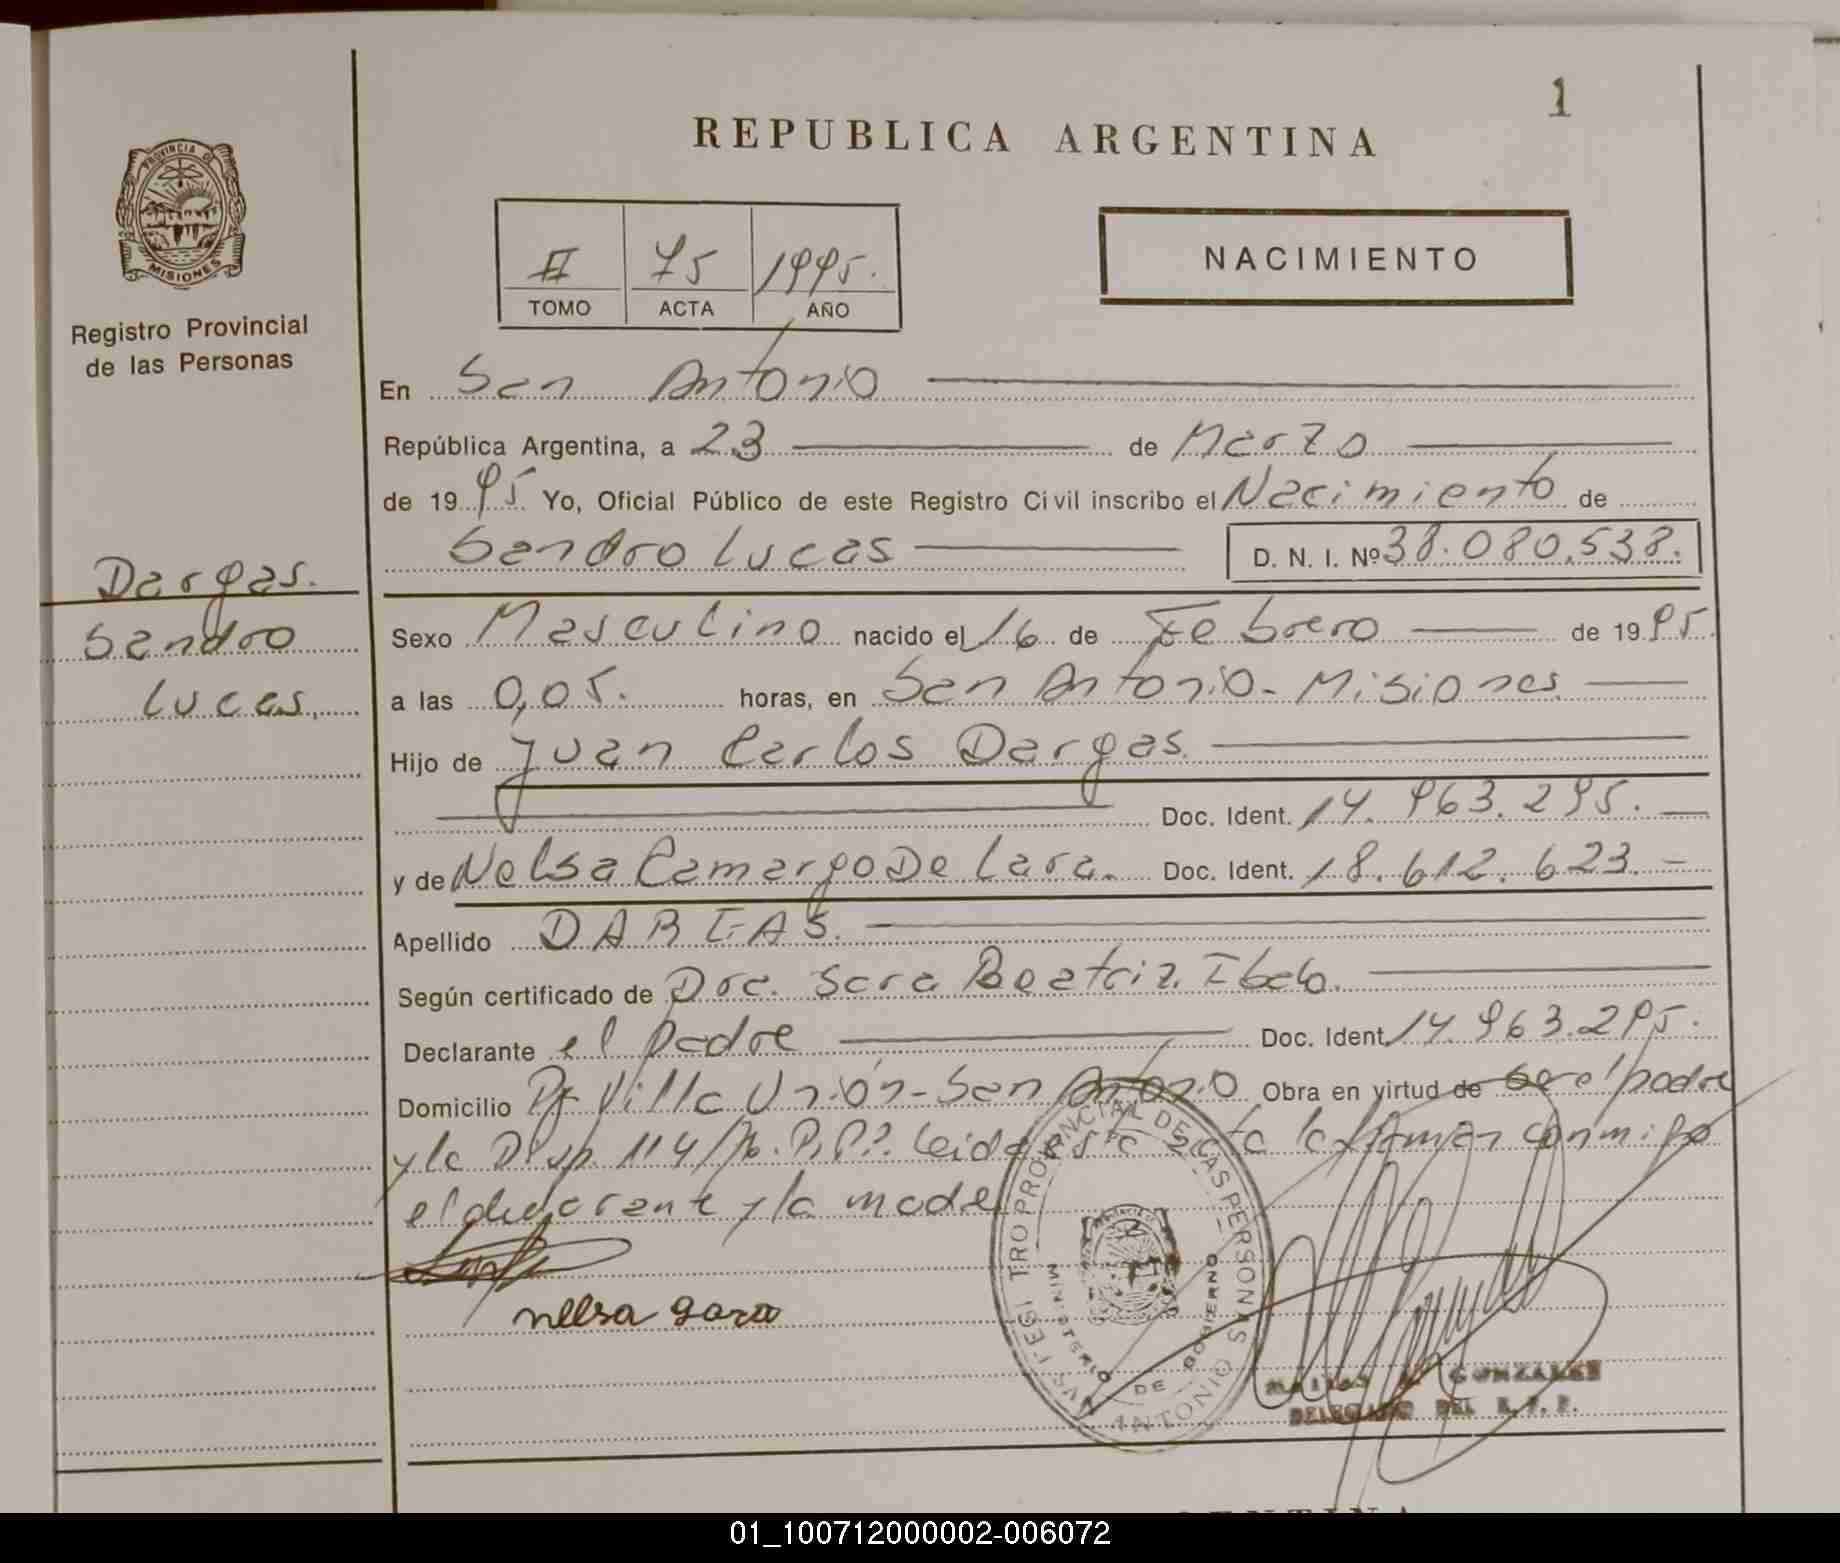 1
REPUBLICA ARGENTINA
PROVINCIA DE
MISIONES
Registro Provincial
de las Personas
II 75 1995.
TOMO ACTA AÑO
NACIMIENTO
En San Antonio
República Argentina, a 23 de Marzo
de 1995 Yo, Oficial Público de este Registro Civil inscribo el Nacimiento de
Sandro Lucas D. N. I. Nº 38.080.538.
Dargas.
Sandro
Lucas.
Sexo Masculino nacido el 16 de Febrero de 1995
a las 0,05. horas, en San Antonio - Misiones
Hijo de Juan Carlos Dargas.
Doc. Ident. 14.963.295.
y de Nelsa Camargo De Lara. Doc. Ident. 18.612.623.
Apellido DARGAS.
Según certificado de Dra. Sara Beatriz
Declarante el padre Doc. Ident. 14.963.295.
Domicilio Villa Unión - San Antonio Obra en virtud de ser el padre
y la Disp. 114/ Leida esta acta la firman conmigo
el declarante y la madre
REGISTRO PROVINCIAL DE LAS PERSONAS
MINISTERIO DE GOBIERNO
SAN ANTONIO
GONZALEZ
DELEGADO DEL R. P. P.
01_100712000002-006072